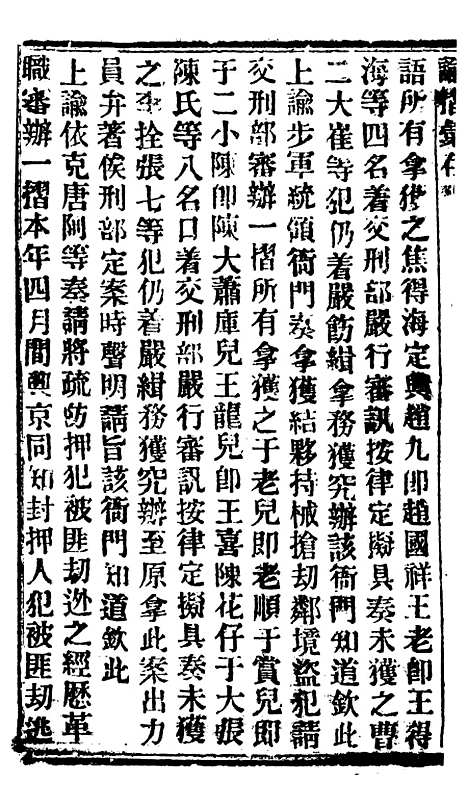 諭摺彙存
語所有拿獲之焦得海定興趙九即趙國祥王老即王得
海等四名着交刑部嚴行審訊按律定擬具奏未獲之曹
二大崔等犯仍着嚴飭緝拿務獲究辦該衙門知道欽此
上諭步軍統領衙門奏拿獲結夥持械搶劫鄰境盜犯請
交刑部審辦一摺所有拿獲之于老兒即老順于賞兒即
于二小陳即陳大蕭庫兒王龍兒即王喜陳花仔于大張
陳氏等八名口着交刑部嚴行審訊按律定擬具奏未獲
之李拴張七等犯仍着嚴緝務獲究辦至原拿此案出力
員弁著俟刑部定案時聲明請旨該衙門知道欽此
上諭依克唐阿等奏請將疏防押犯被匪劫迯之經歷革
職審辦一摺本年四月間興京同知封押人犯被匪劫逃